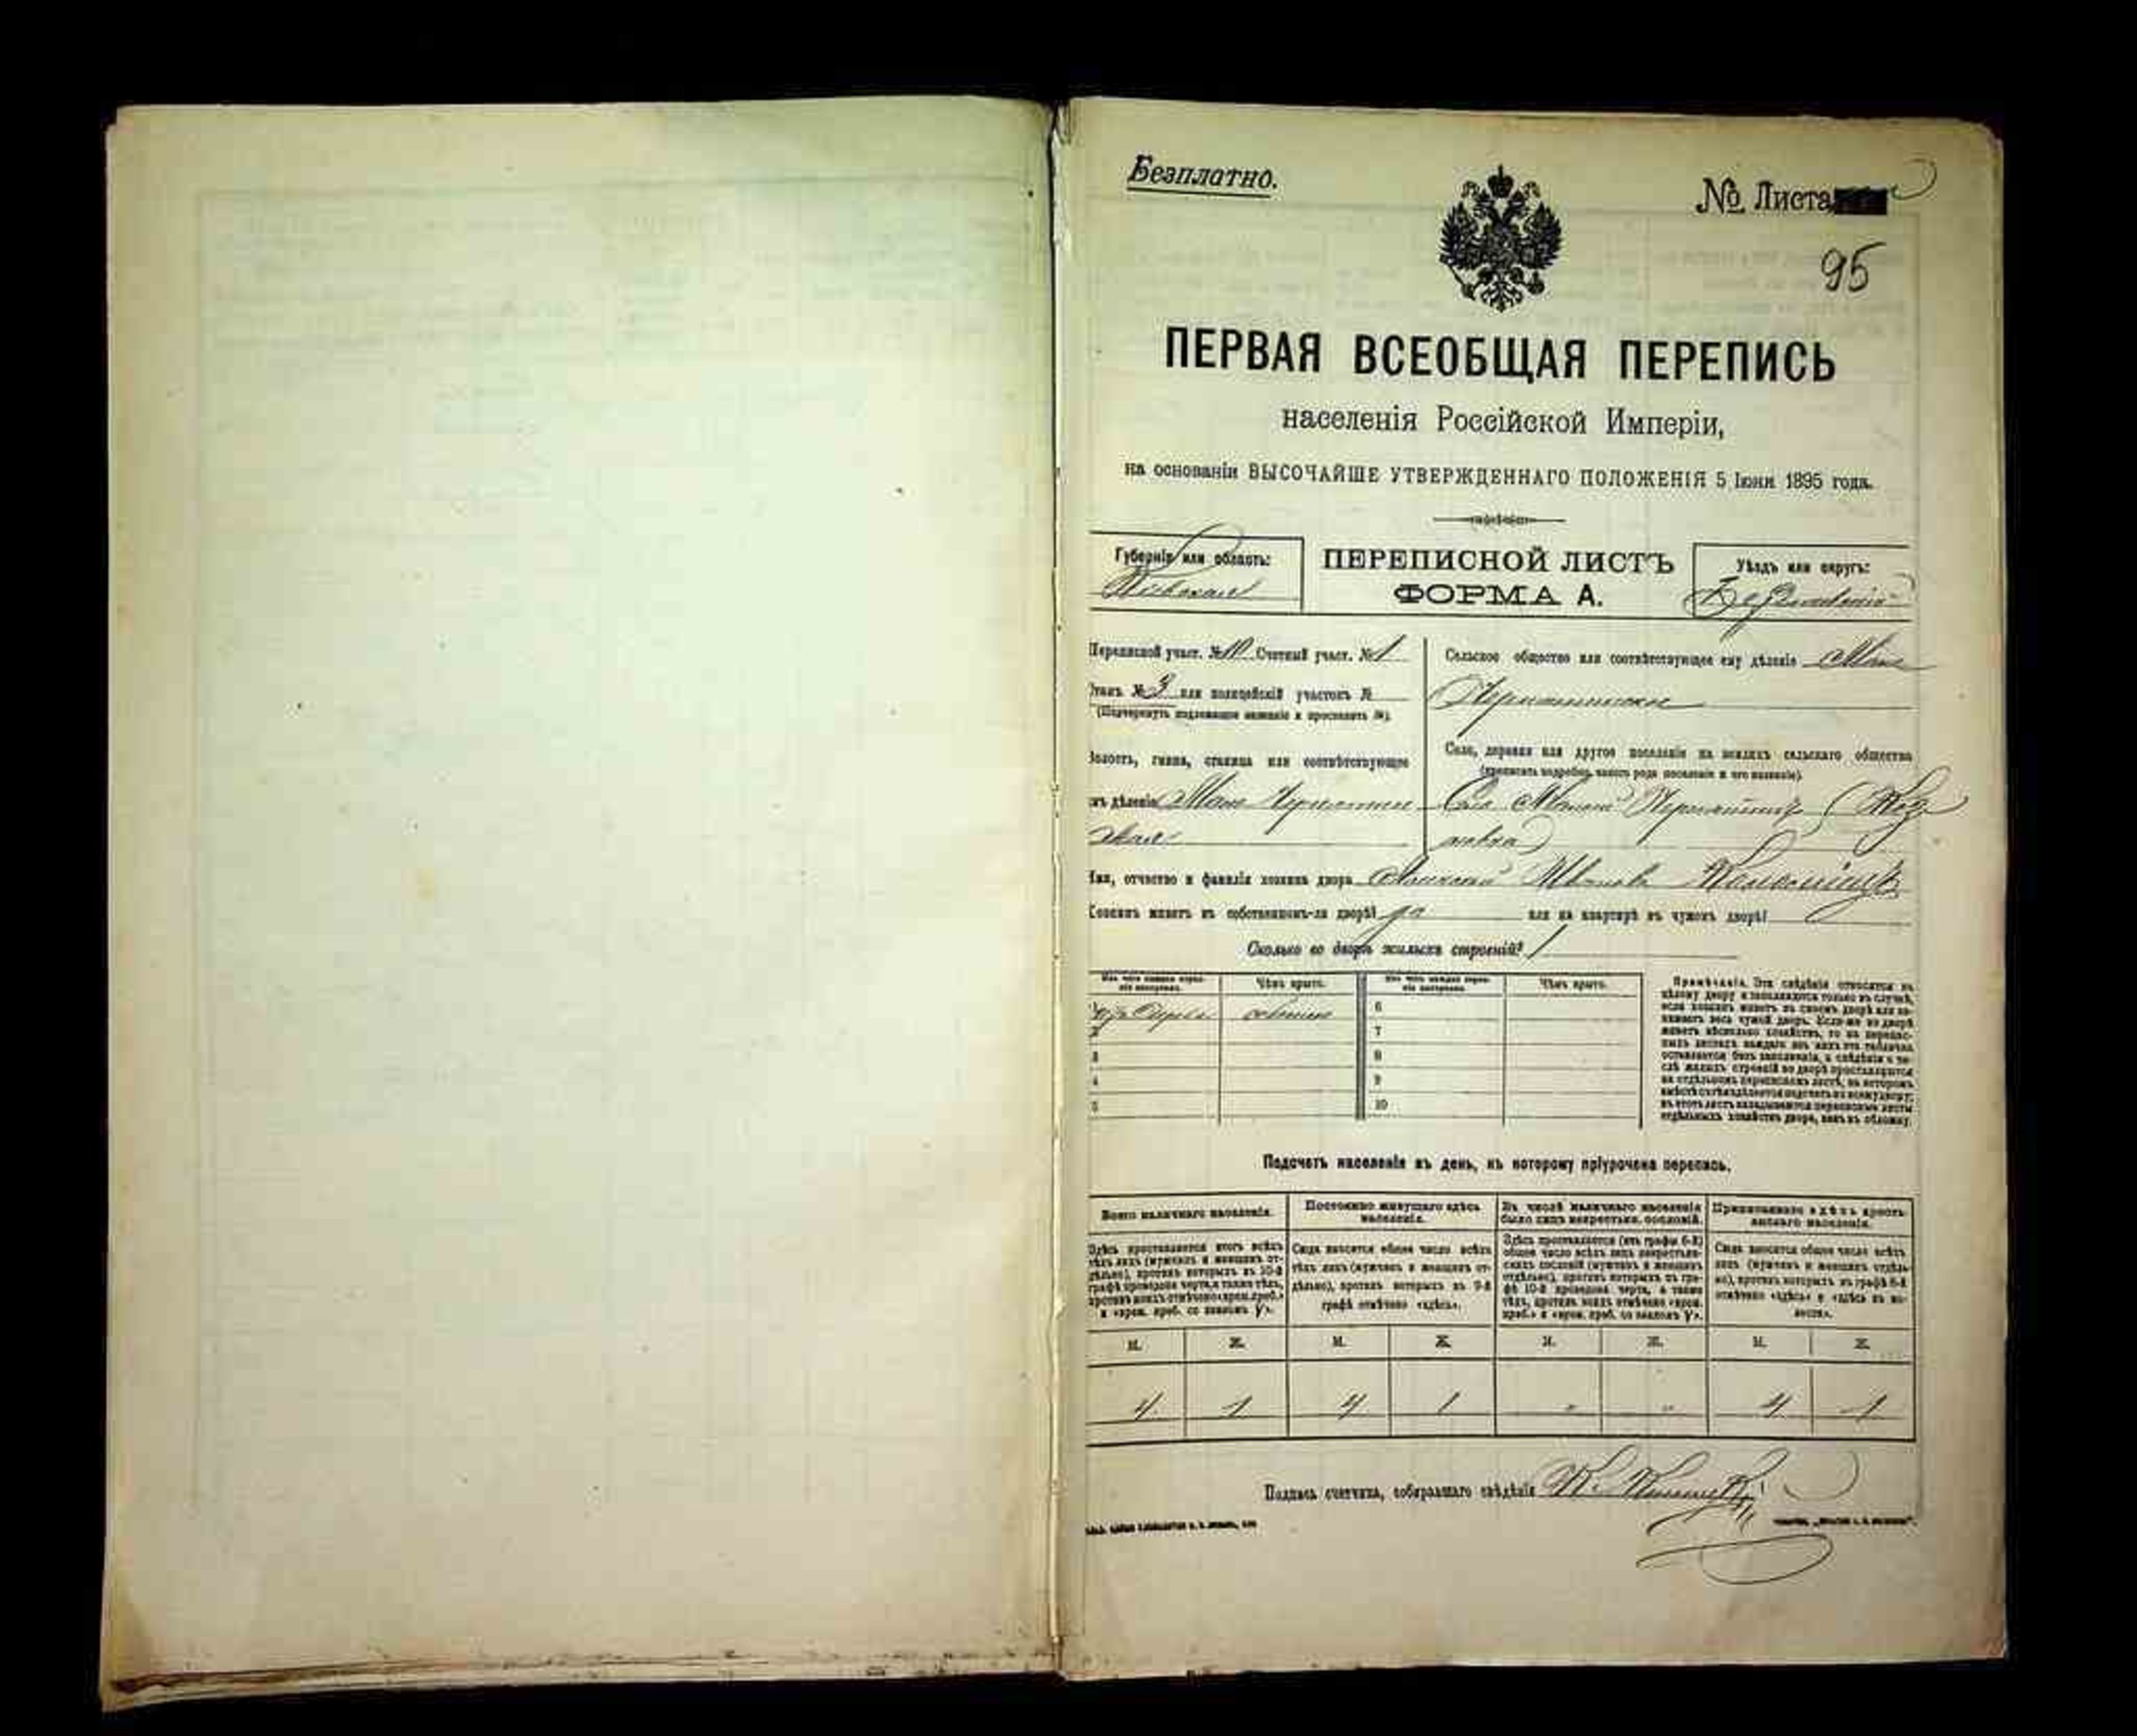 Безплатно.
№ Листа
95
ПЕРВАЯ ВСЕОБЩАЯ ПЕРЕПИСЬ
населенія Россійской Имперіи,
на основаніи ВЫСОЧАЙШЕ УТВЕРЖДЕННАГО ПОЛОЖЕНІЯ 5 Іюня 1895 года.
Губернія или область:
ПЕРЕПИСНОЙ ЛИСТЪ
ФОРМА А.
Уѣздъ или округъ:
Переписной участ. № 10 Счетный участ. № 1
Станъ № 3 или полицейскій участокъ №
(Подчеркнуть подлежащее названіе и проставить №).
Сельское общество или соотвѣтствующее ему дѣленіе Мало
Волость, гмина, станица или соотвѣтствующее
имъ дѣленіе Мало
Село, деревня или другое поселеніе на земляхъ сельскаго общества
(прописать подробно, какого рода поселеніе и его названіе).
Село Малый
Имя, отчество и фамилія хозяина двора Алексей Иванов Коломіецъ
Хозяинъ живетъ въ собственномъ-ли дворѣ? да или на квартирѣ въ чужомъ дворѣ?
Сколько во дворѣ жилыхъ строеній? 1
Изъ чего каждое строеніе построено.
Чѣмъ крыто.
Изъ чего каждое строеніе построено.
Чѣмъ крыто.
1 из дерева соломою
2
3
4
5
6
7
8
9
10
Примѣчаніе. Эти свѣдѣнія относятся къ
цѣлому двору и заполняются только въ случаѣ,
если хозяинъ живетъ въ своемъ дворѣ или занимаетъ весь чужой дворъ. Если-же во дворѣ
живетъ нѣсколько хозяйствъ, то на переписныхъ листахъ каждаго изъ нихъ эта табличка
оставляется безъ заполненія, а свѣдѣнія о числѣ жилыхъ строеній во дворѣ проставляются
на отдѣльномъ переписномъ листѣ, въ которомъ
Подсчетъ населенія къ день, къ которому пріурочена перепись.
Всего наличнаго населенія.
Постоянно живущаго здѣсь населенія.
Въ числѣ наличнаго населенія было лицъ некрестьян. сословій.
Приписаннаго здѣсь крестьянскаго населенія.
Здѣсь проставляется итогъ всѣхъ тѣхъ лицъ (мужчинъ и женщинъ отдѣльно), противъ которыхъ въ 10-й графѣ проведена черта, а также тѣхъ, противъ коихъ отмѣчено «врем. преб.» и «врем. преб. со знакомъ V».
Сюда вносится общее число всѣхъ тѣхъ лицъ (мужчинъ и женщинъ отдѣльно), противъ которыхъ въ 9-й графѣ отмѣчено «здѣсь».
Здѣсь проставляется (изъ графы 6-й) общее число всѣхъ лицъ некрестьянскихъ сословій (мужчинъ и женщинъ отдѣльно), противъ которыхъ въ графѣ 10-й проведена черта, а также тѣхъ, противъ коихъ отмѣчено «врем. преб.» и «врем. преб. со знакомъ V».
Сюда вносится общее число всѣхъ лицъ (мужчинъ и женщинъ отдѣльно), противъ которыхъ въ графѣ 8-й отмѣчено «здѣсь» и «здѣсь въ волости».
М. Ж. М. Ж. М. Ж. М. Ж.
4 1 4 1 " " 4 1
Подпись счетчика, собиравшаго свѣдѣнія